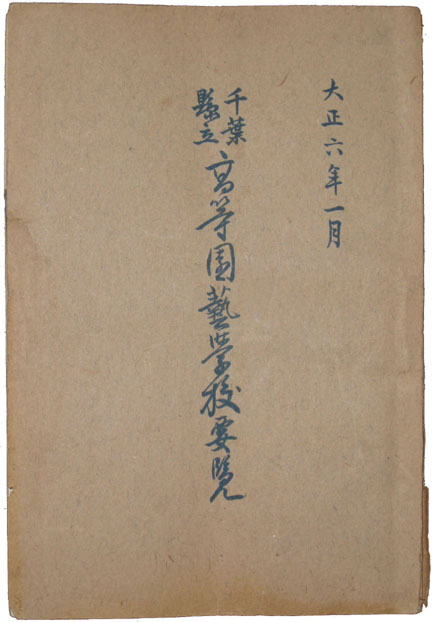 大正六年一月
千葉縣立高等園藝學校要覽